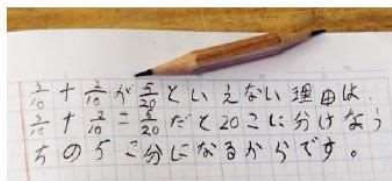 3/10 + 2/10 が 5/20 といえない理由は、
3/10 + 2/10 = 5/20 だと20こに分けたう
ちの5こ分になるからです。